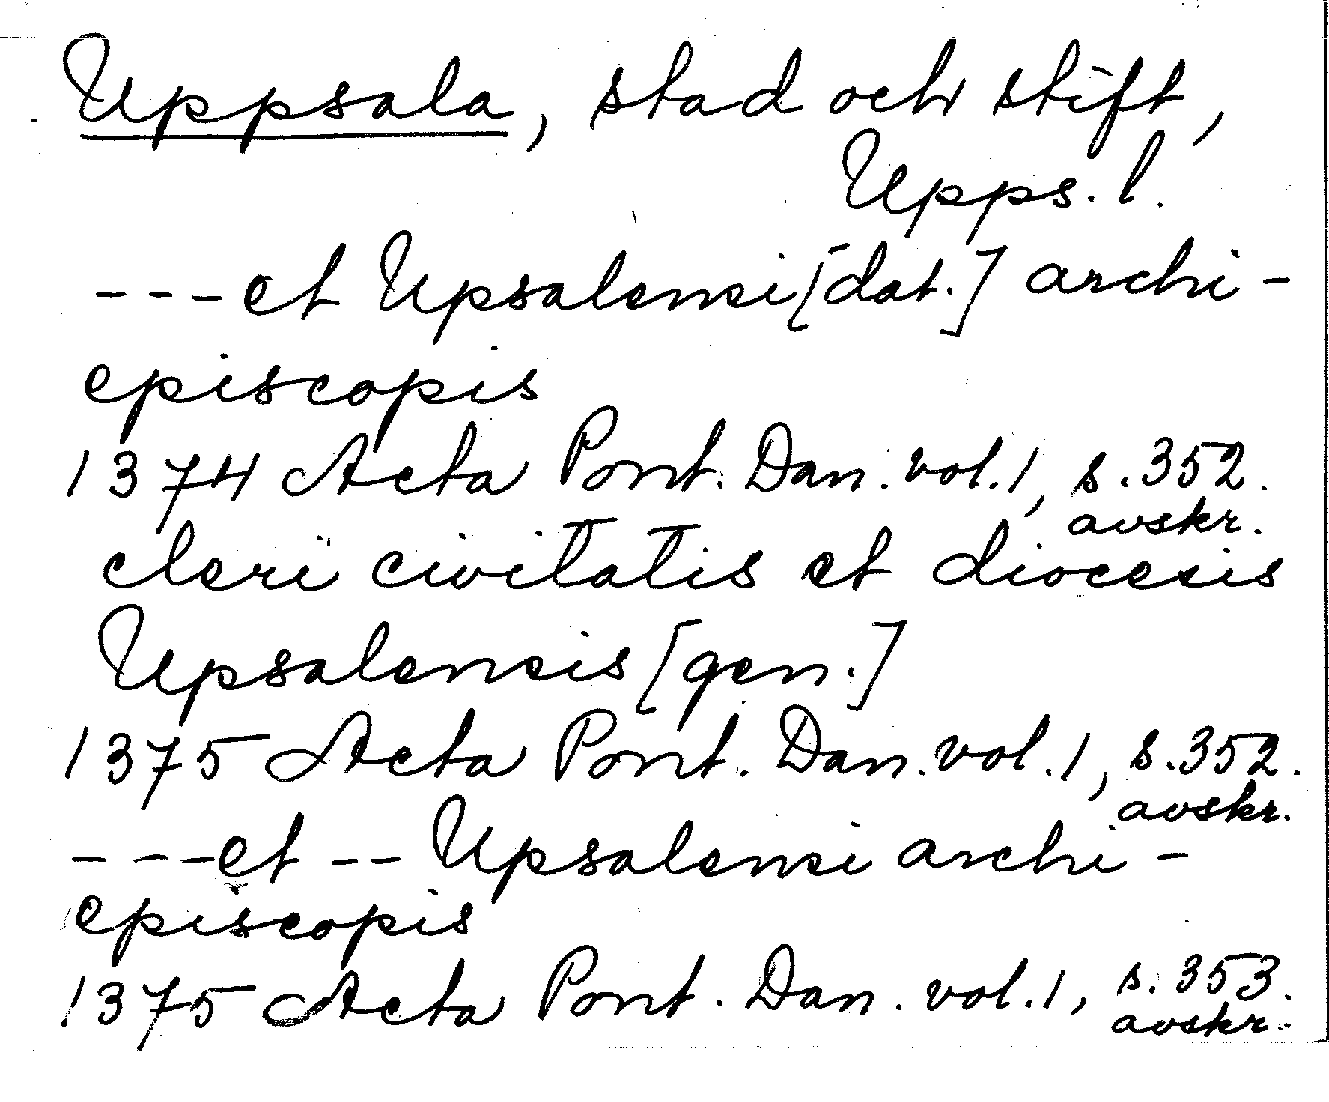 Uppsala, stad och stift,
Upps. l.
--- et Upsalensi [dat.] archi-
episcopis
1374 Acta Pont. Dan. vol. 1, s. 352.
avskr.
cleri civitatis et diocesis
Upsalensis [gen.]
1375 Acta Pont. Dan. vol. 1, s. 352.
avskr.
--- et -- Upsalensi archi-
episcopis
1375 Acta Pont. Dan. vol. 1, s. 353.
avskr.